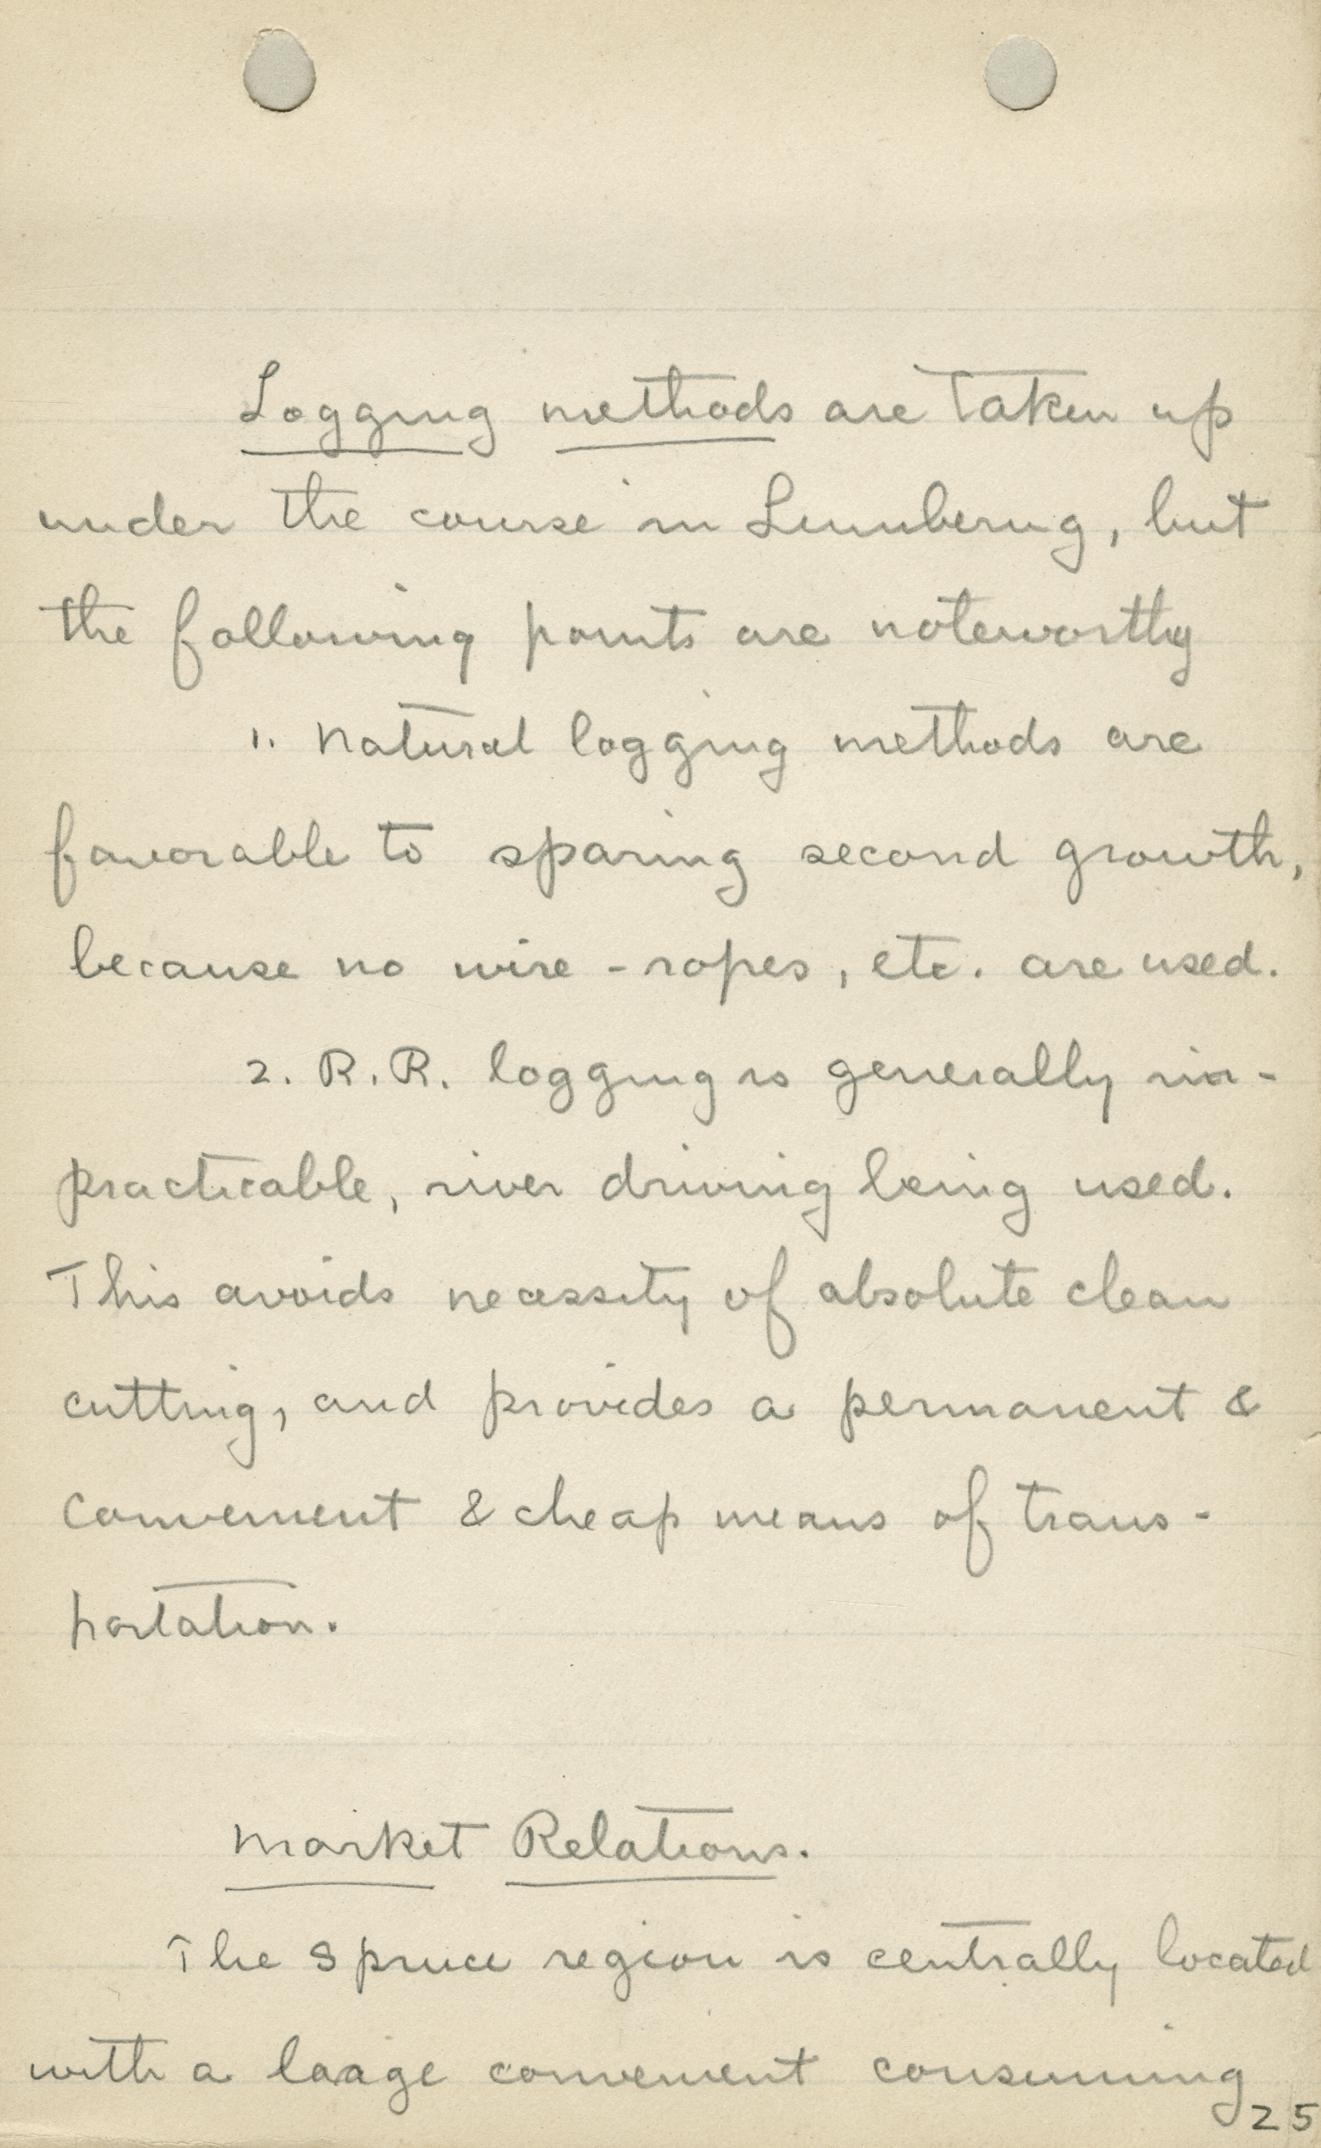 Logging methods are taken up
under the course in Lumbering, but
the following points are noteworthy
1. Natural logging methods are
favorable to sparing second growth,
because no wire-ropes, etc. are used.
2. R.R. logging is generally im-
practicable, river driving being used.
This avoids necessity of absolute clean
cutting, and provides a permanent &
convenient & cheap means of trans-
portation.
Market Relations.
The Spruce region is centrally located
with a large convenient consuming
25